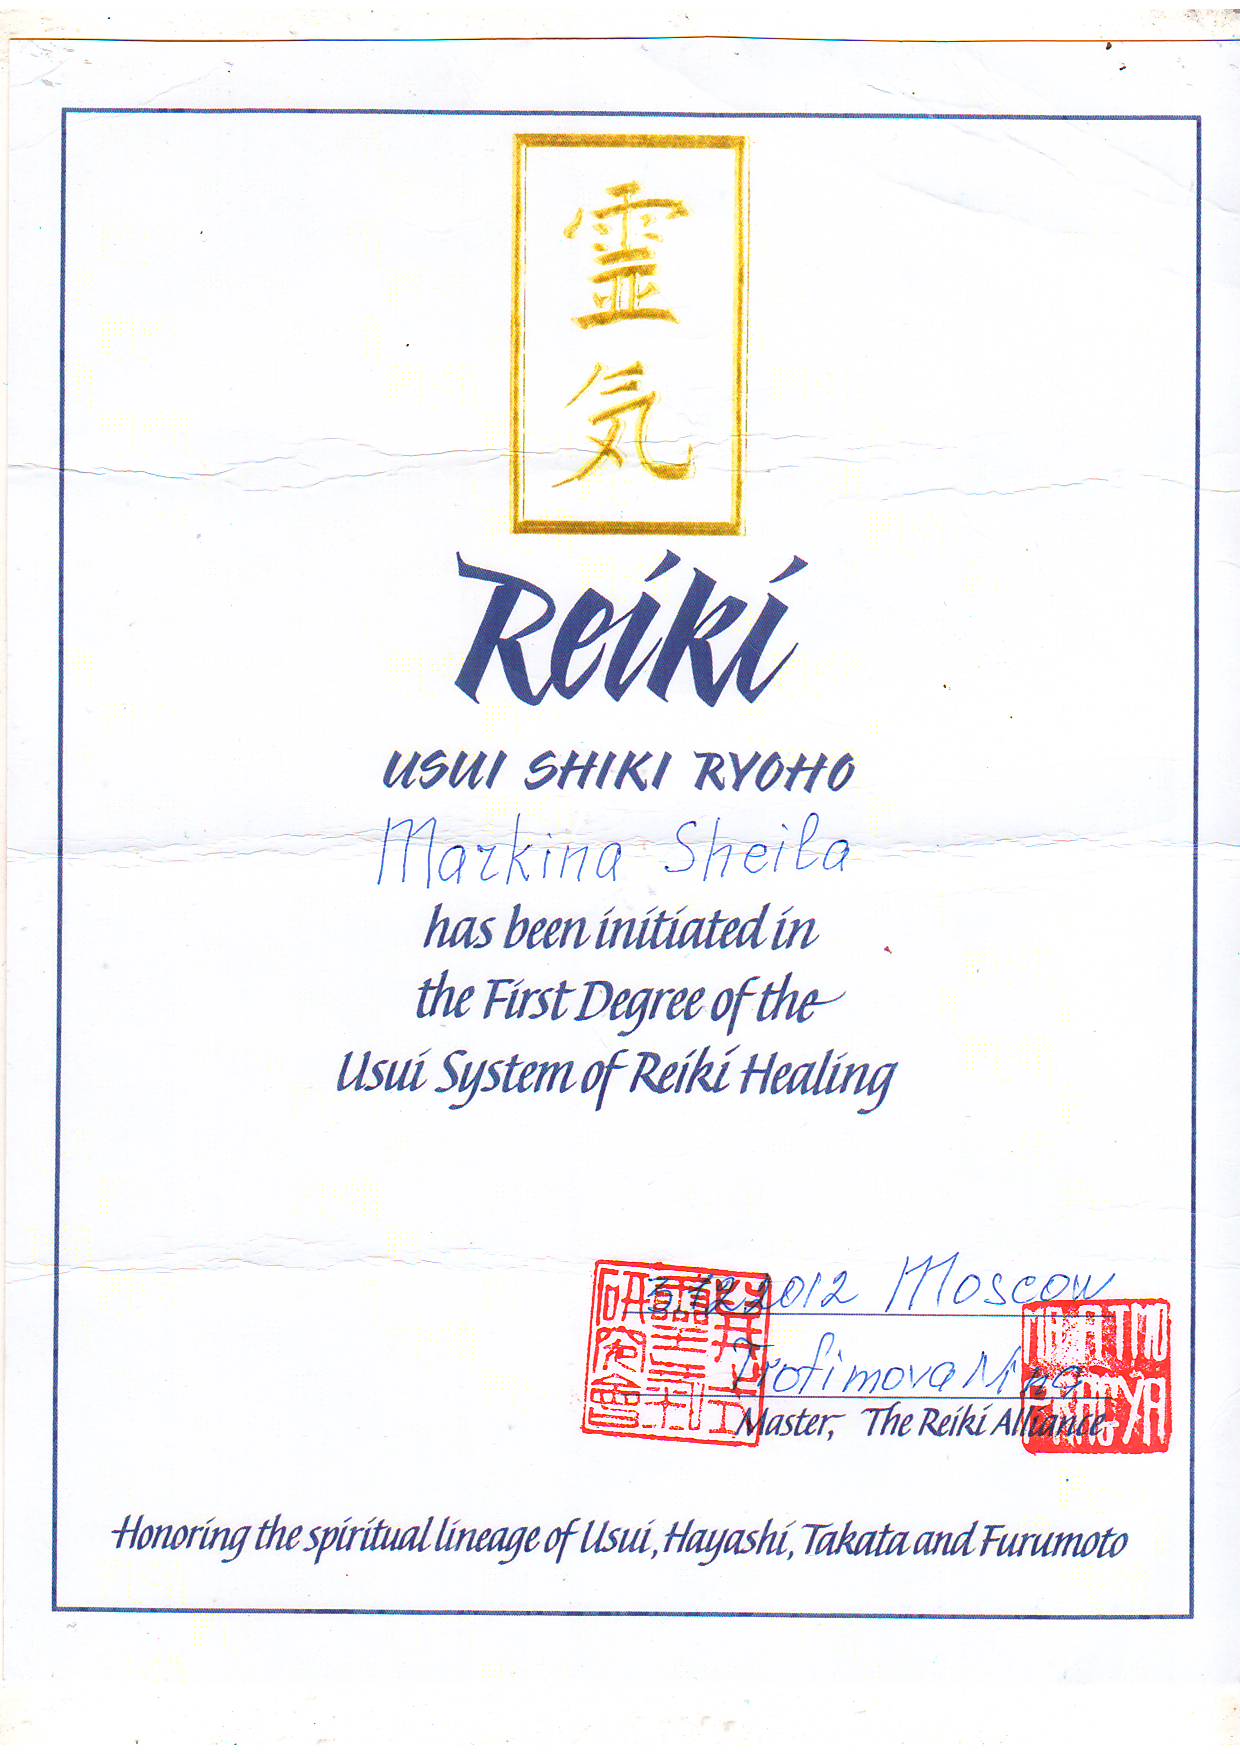 靈
気
Reiki
USUI SHIKI RYOHO
Markina Sheila
has been initiated in
the First Degree of the
Usui System of Reiki Healing
2012 Moscow
Trofimova
Master, The Reiki Alliance
Honoring the spiritual lineage of Usui, Hayashi, Takata and Furumoto